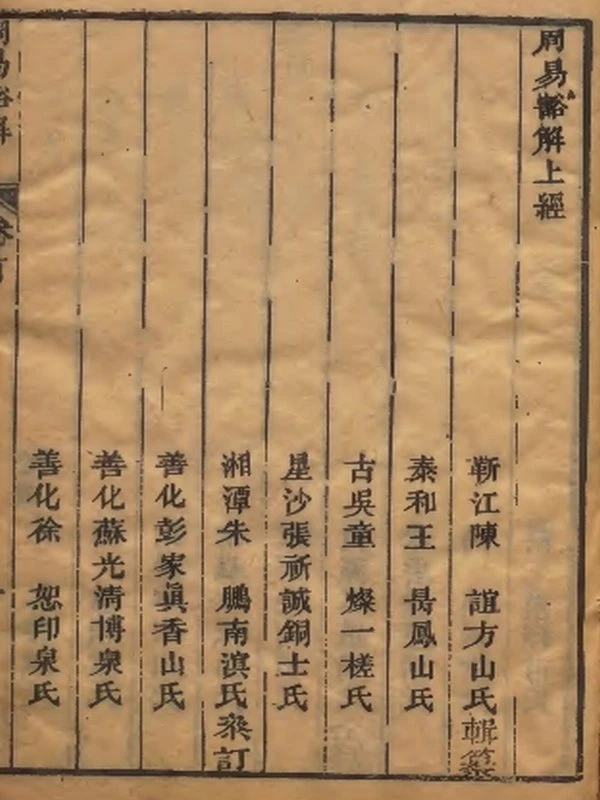 周易豁解上經
靳江陳 誼方山氏輯纂
泰和王 昺鳳山氏
古吳童 燦一槎氏
星沙張祈誠銅士氏
湘潭朱 鵬南滇氏叅訂
善化彭家眞香山氏
善化蘇光清博泉氏
善化徐 恕印泉氏
周易豁解